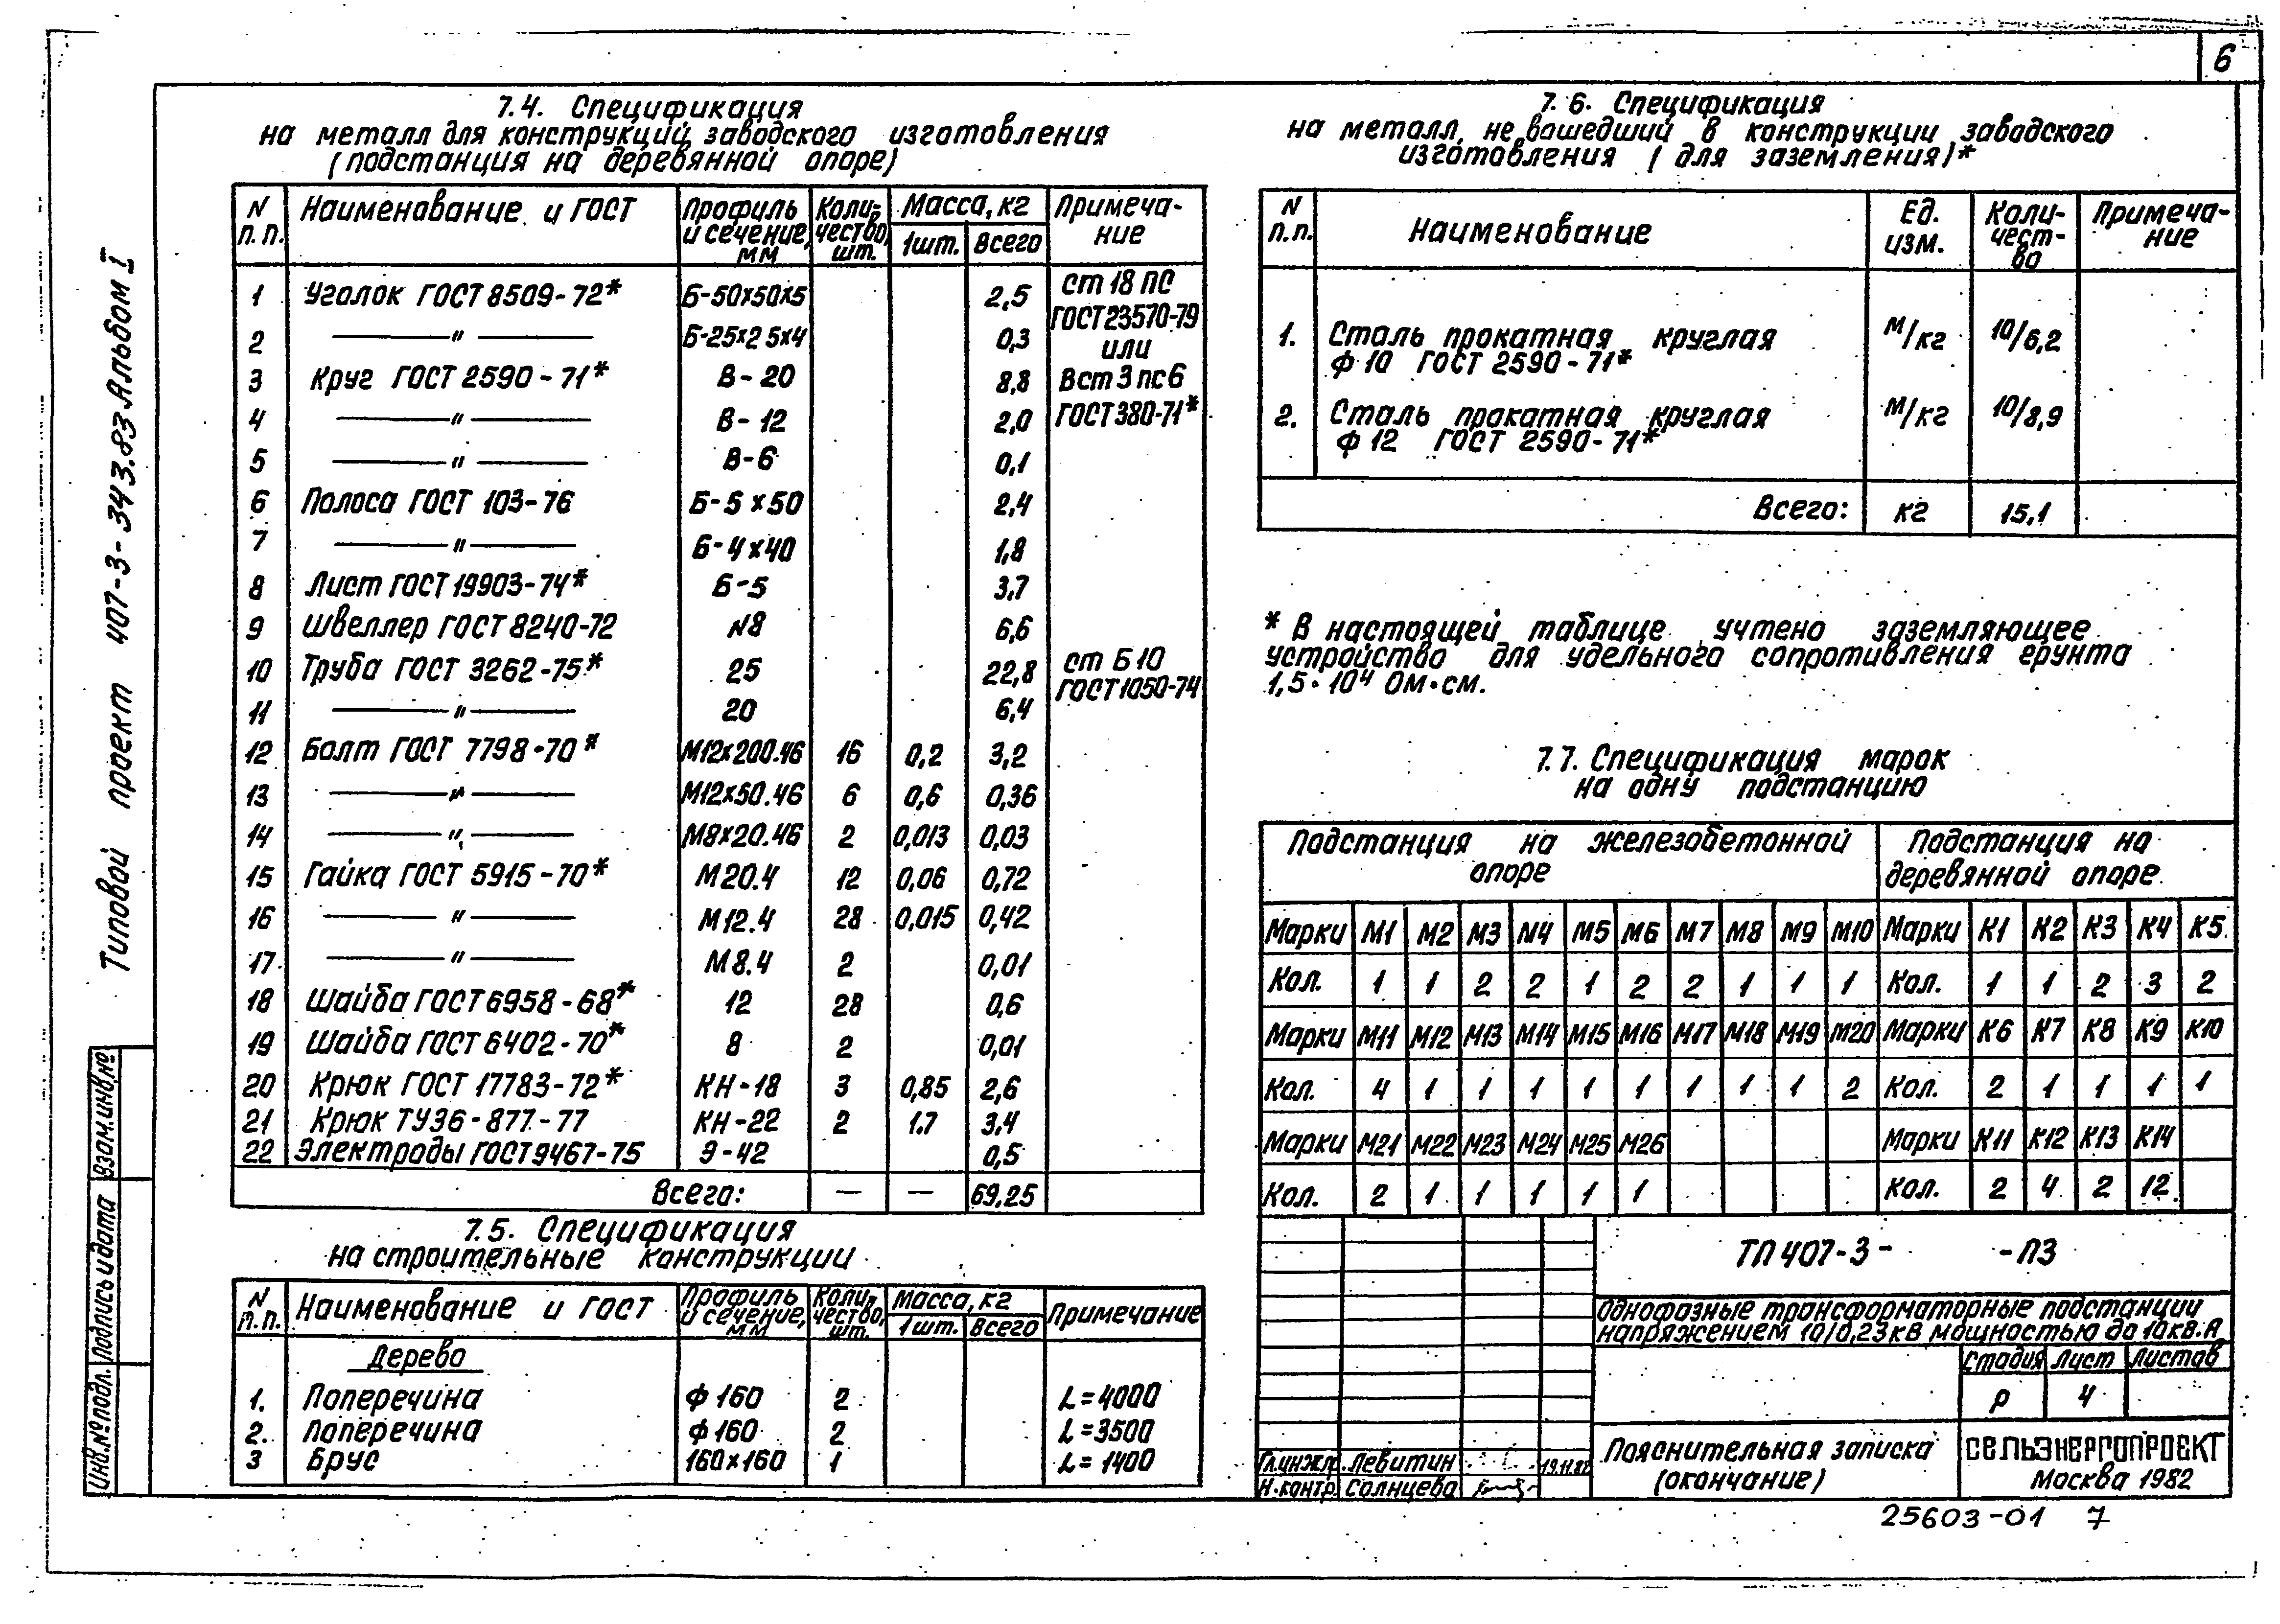 6
7.4. Спецификация
на металл для конструкций заводского изготовления
(подстанция на деревянной опоре)
N п.п. Наименование и ГОСТ Профиль и сечение, мм Количество, шт. Масса, кг 1шт. Всего Примечание
1 Уголок ГОСТ 8509-72* Б-50х50х5 2,5 ст 18 ПС
ГОСТ 23570-79
2 —"— Б-25х25х4 0,3 или
3 Круг ГОСТ 2590-71* В-20 8,8 Вст 3 пс 6
4 —"— В-12 2,0 ГОСТ 380-71*
5 —"— В-6 0,1
6 Полоса ГОСТ 103-76 Б-5х50 2,4
7 —"— Б-4х40 1,8
8 Лист ГОСТ 19903-74* Б-5 3,7
9 Швеллер ГОСТ 8240-72 N8 6,6
10 Труба ГОСТ 3262-75* 25 22,8 ст Б 10
ГОСТ 1050-74
11 —"— 20 6,4
12 Болт ГОСТ 7798-70* М12х200.46 16 0,2 3,2
13 —"— М12х50.46 6 0,6 0,36
14 —"— М8х20.46 2 0,013 0,03
15 Гайка ГОСТ 5915-70* М20.4 12 0,06 0,72
16 —"— М12.4 28 0,015 0,42
17 —"— М8.4 2 0,01
18 Шайба ГОСТ 6958-68* 12 28 0,6
19 Шайба ГОСТ 6402-70* 8 2 0,01
20 Крюк ГОСТ 17783-72* КН-18 3 0,85 2,6
21 Крюк ТУ36-877-77 КН-22 2 1.7 3,4
22 Электроды ГОСТ 9467-75 Э-42 0,5
Всего: — — 69,25
7.5. Спецификация
на строительные конструкции
N п.п. Наименование и ГОСТ Профиль и сечение, мм Количество, шт. Масса, кг 1шт. Всего Примечание
Дерево
1. Поперечина ф 160 2 L=4000
2. Поперечина ф 160 2 L=3500
3 Брус 160х160 1 L=1400
7.6. Спецификация
на металл, не вошедший в конструкции заводского
изготовления (для заземления)*
N п.п. Наименование Ед. изм. Количество Примечание
1. Сталь прокатная круглая м/кг 10/6,2
ф 10 ГОСТ 2590-71*
2. Сталь прокатная круглая м/кг 10/8,9
ф 12 ГОСТ 2590-71*
Всего: кг 15,1
* В настоящей таблице учтено заземляющее
устройство для удельного сопротивления грунта
1,5·10⁴ Ом·см.
7.7. Спецификация марок
на одну подстанцию
Подстанция на железобетонной опоре Подстанция на деревянной опоре
Марки М1 М2 М3 М4 М5 М6 М7 М8 М9 М10 Марки К1 К2 К3 К4 К5
Кол. 1 1 2 2 1 2 2 1 1 1 Кол. 1 1 2 3 2
Марки М11 М12 М13 М14 М15 М16 М17 М18 М19 М20 Марки К6 К7 К8 К9 К10
Кол. 4 1 1 1 1 1 1 1 1 2 Кол. 2 1 1 1 1
Марки М21 М22 М23 М24 М25 М26 Марки К11 К12 К13 К14
Кол. 2 1 1 1 1 1 Кол. 2 4 2 12
ТП 407-3- -ПЗ
Однофазные трансформаторные подстанции
напряжением 10/0,23кВ мощностью до 10кВ.А
Стадия Лист Листов
Р 4
Гл.инж.пр. Левитин
Н.контр. Солнцева
Пояснительная записка
(окончание)
СЕЛЬЭНЕРГОПРОЕКТ
Москва 1982
25603-01 7
Типовой проект 407-3-343.83 Альбом I
Взам.инв.№
Подпись и дата
Инв.№ подл.